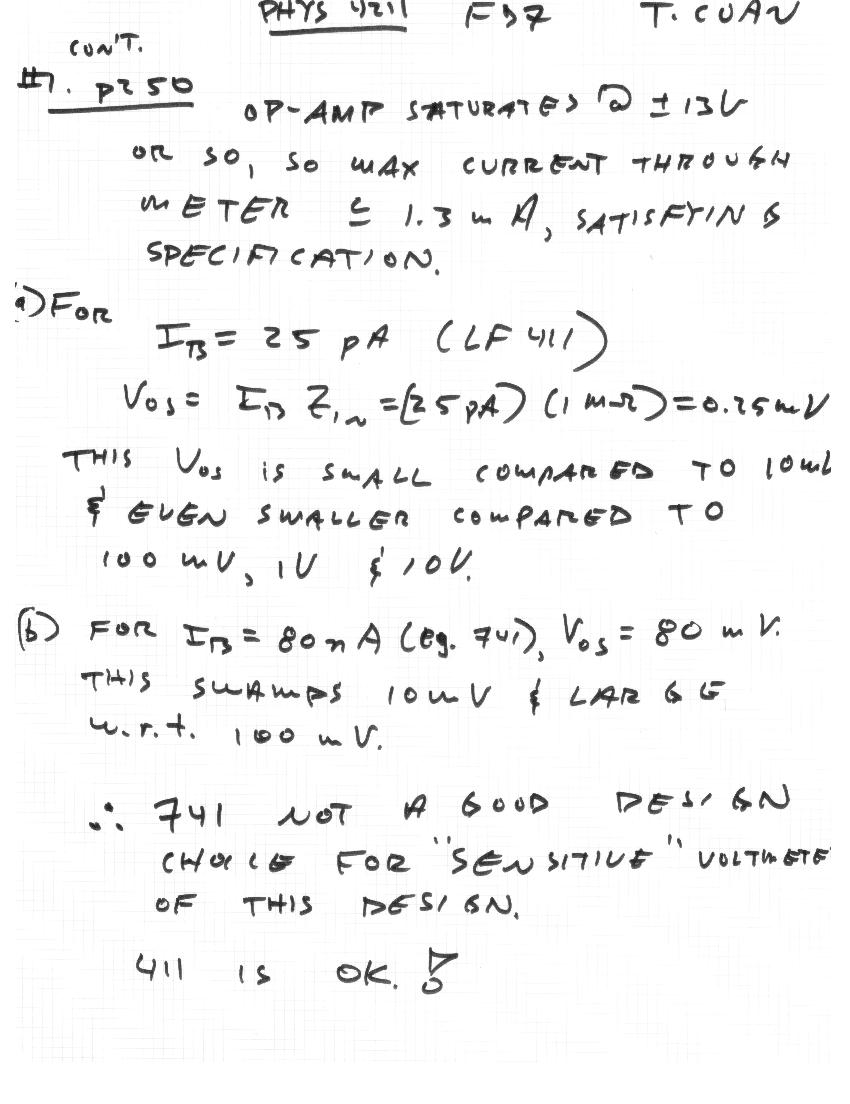 PHYS 4211 F97 T. COAN
CON'T.
#7. p250
OP-AMP SATURATES @ ±13V
OR SO, SO MAX CURRENT THROUGH
METER ≤ 1.3 mA, SATISFYING
SPECIFICATION.
a) FOR
I_B = 25 pA (LF 411)
V_OS = I_B Z_IN = (25 pA) (1 MΩ) = 0.25 mV
THIS V_OS IS SMALL COMPARED TO 10mV
& EVEN SMALLER COMPARED TO
100 mV, 1V & 10V.
(b) FOR I_B = 80 nA (eg. 741), V_OS = 80 mV.
THIS SWAMPS 10 mV & LARGE
w.r.t. 100 mV.
∴ 741 NOT A GOOD DESIGN
CHOICE FOR "SENSITIVE" VOLTMETE
OF THIS DESIGN.
411 IS OK. !